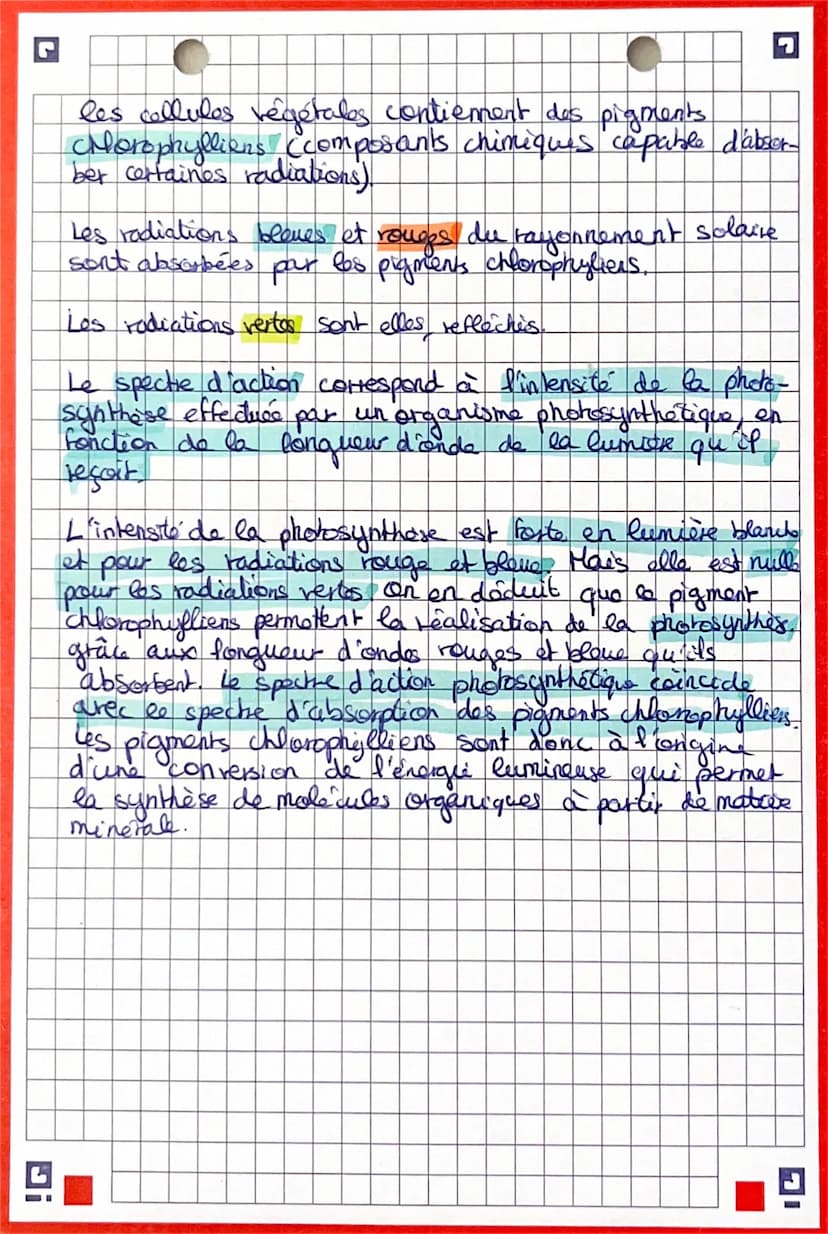 les cellules végétales contiennent des pigments
chlorophylliens (composants chimiques capable d'absor-
ber certaines radiations).
Les radiations bleues et rouges du rayonnement solaire
sont absorbées par les pigments chlorophyliens.
Les radiations vertes sont elles, refléchis.
Le spectre d'action correspond à l'intensité de la photo-
synthèse effectuée par un organisme photosynthétique, en
fonction de la longueur d'onde de la lumière qu'il
reçoit.
L'intensité de la photosynthèse est forte en lumière blanche
et pour les radiations rouge et bleue, Mais elle est nulle
pour les radiations vertes, on en déduit que ce pigment
chlorophylliens permettent la réalisation de la photosynthès,
grâce aux longueur d'ondes rouges et bleue qu'ils
absorbent. Le spectre d'action photosynthétique coïncide
avec le spectre d'absorption des pigments chlorophylliens.
Les pigments chlorophylliens sont donc à l'origine
d'une conversion de l'énergie lumineuse qui permet
la synthèse de molécules organiques à partir de matière
minérale.